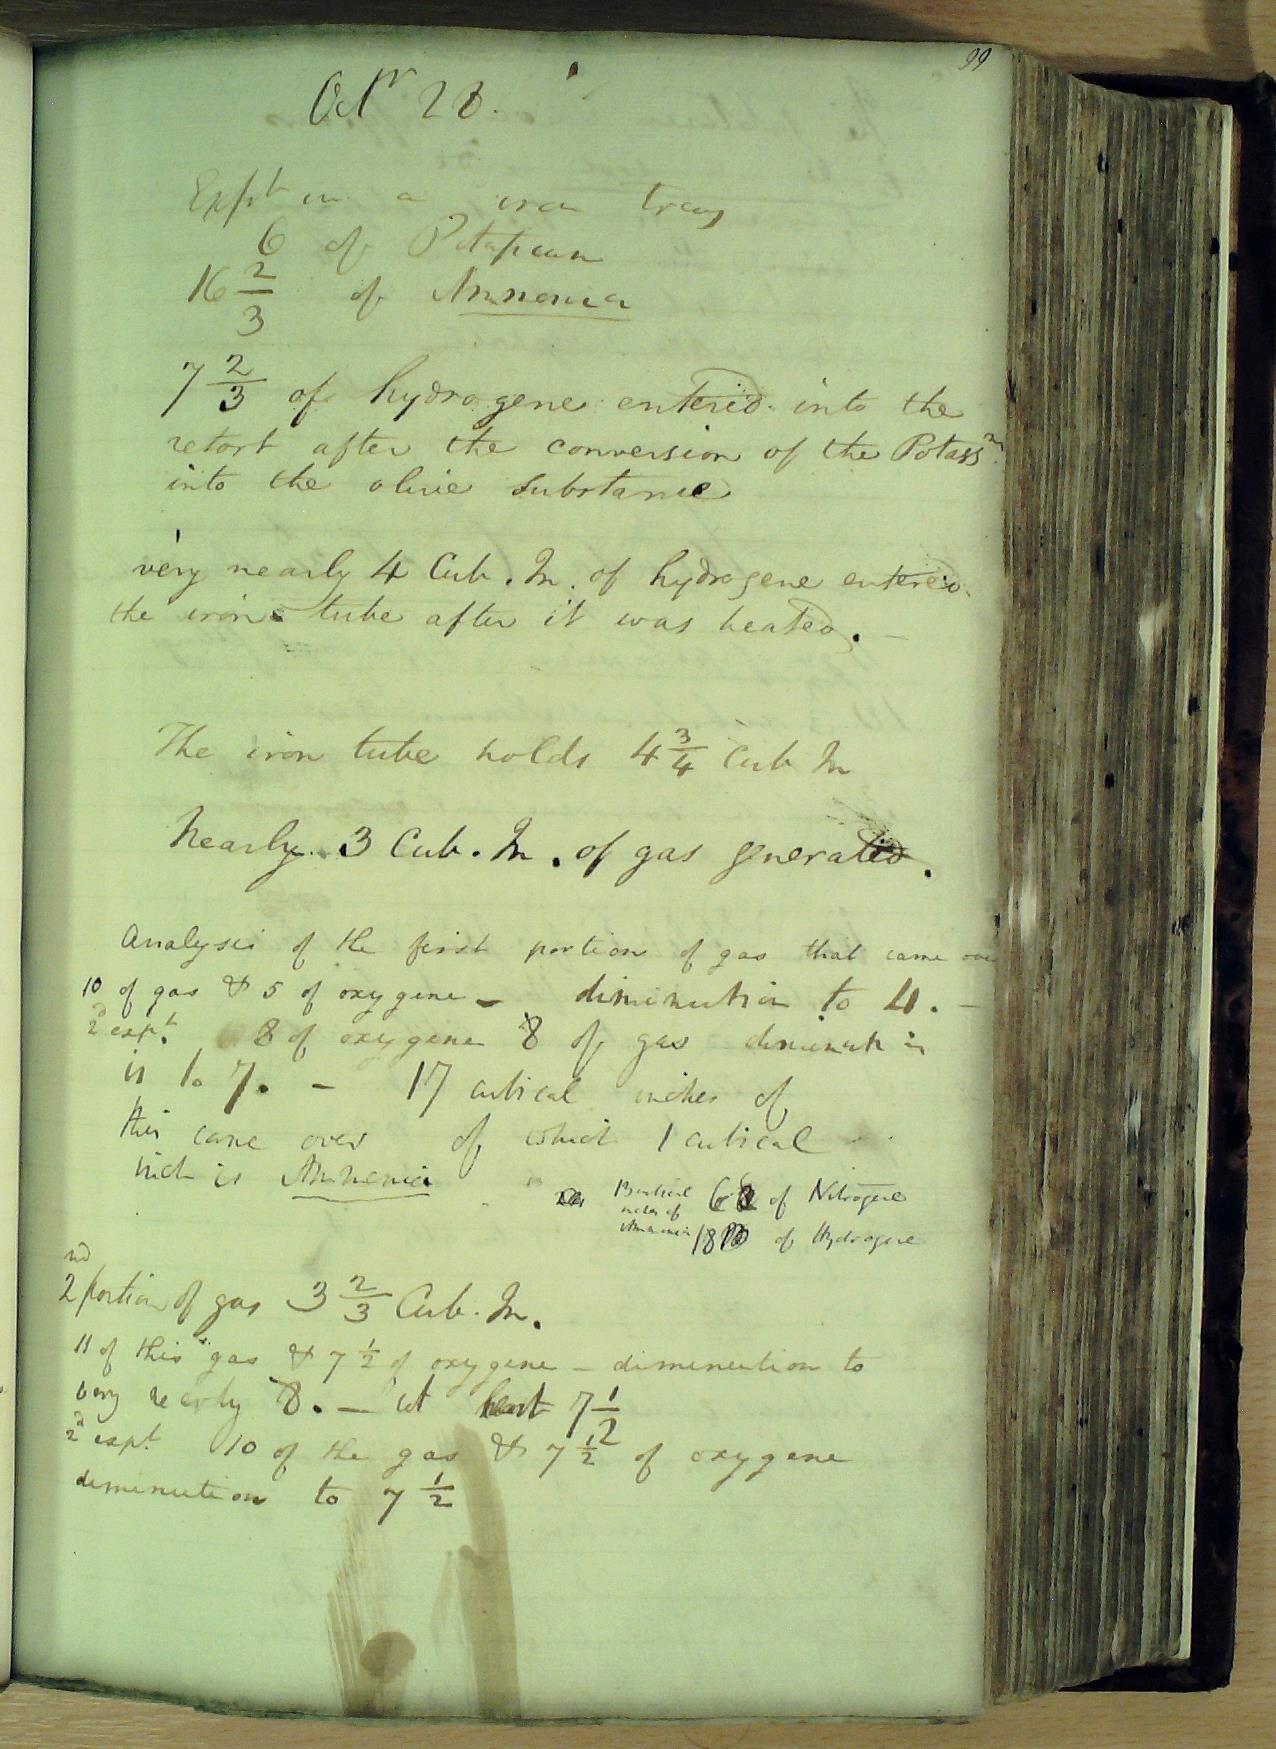 99
Octr 28.
Expt in a iron tray
6 of Potassium
16 2/3 of Ammonia
7 2/3 of hydrogene entered into the
retort after the conversion of the Potassm
into the olive substance
very nearly 4 Cub. In. of hydrogene entered
the iron tube after it was heated. —
The iron tube holds 4 3/4 Cub In
Nearly 3 Cub. In. of gas generated.
Analysis of the first portion of gas that came over
10 of gas & 5 of oxygene — diminution to 4. —
2d expt. 8 of oxygene 8 of gas diminution
is to 7. — 17 cubical inches of
this came over of which 1 cubical
inch is Ammonia
13 cubical
inches of
Ammonia
6 of Nitrogene
18 of Hydrogene
2nd portion of gas 3 2/3 Cub. In.
11 of this gas & 7 1/2 of oxygene — diminution to
very nearly 8. — 7 1/2
2d expt. 10 of the gas & 7 1/2 of oxygene
diminution to 7 1/2